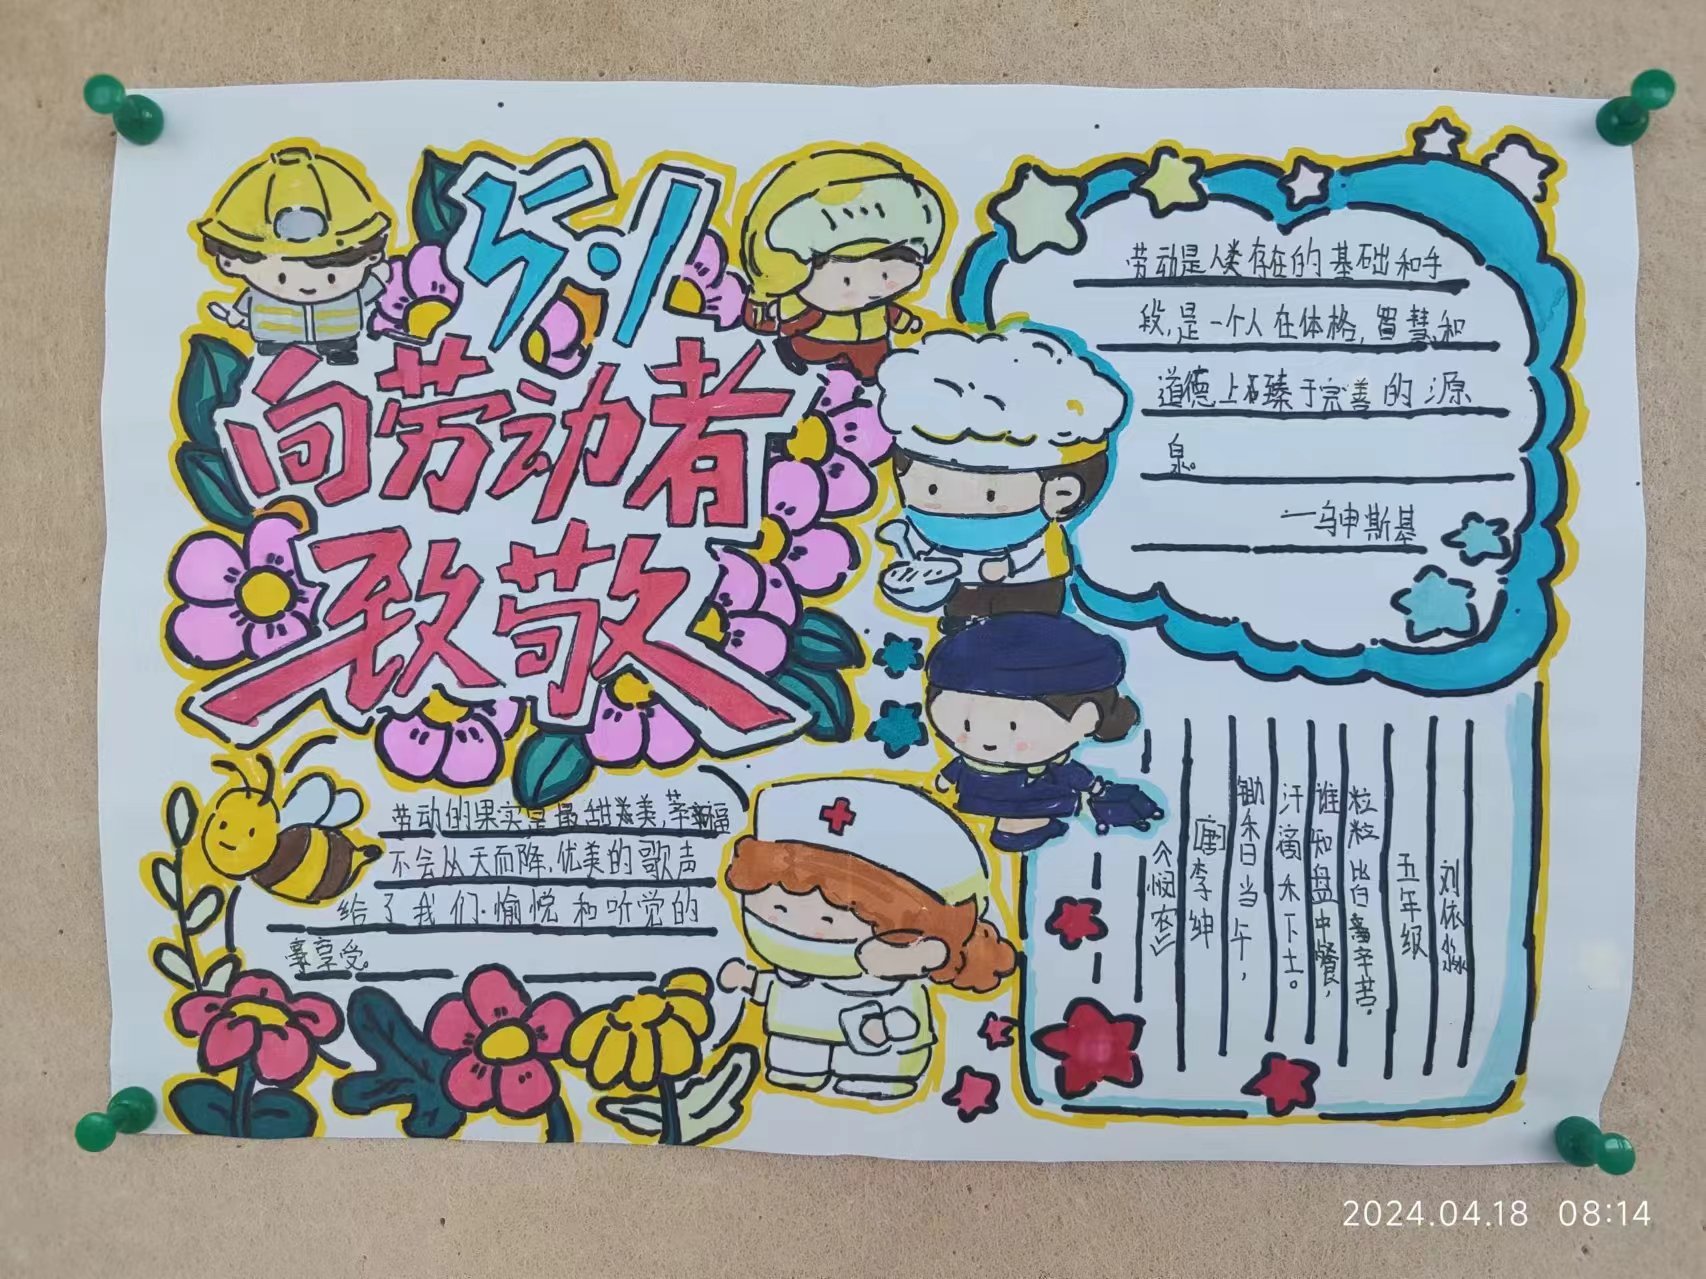 5.1
向劳动者
致敬
劳动是人类存在的基础和手
段,是一个人在体格,智慧,和
道德上臻于完善的源
泉。
——乌申斯基
劳动的果实是最甜美,幸福
不会从天而降,优美的歌声
给了我们.愉悦和听觉的
享受。
《悯农》
[唐]李绅
锄禾日当午,
汗滴禾下土。
谁知盘中餐,
粒粒皆辛苦。
五年级
刘依淼
2024.04.18 08:14